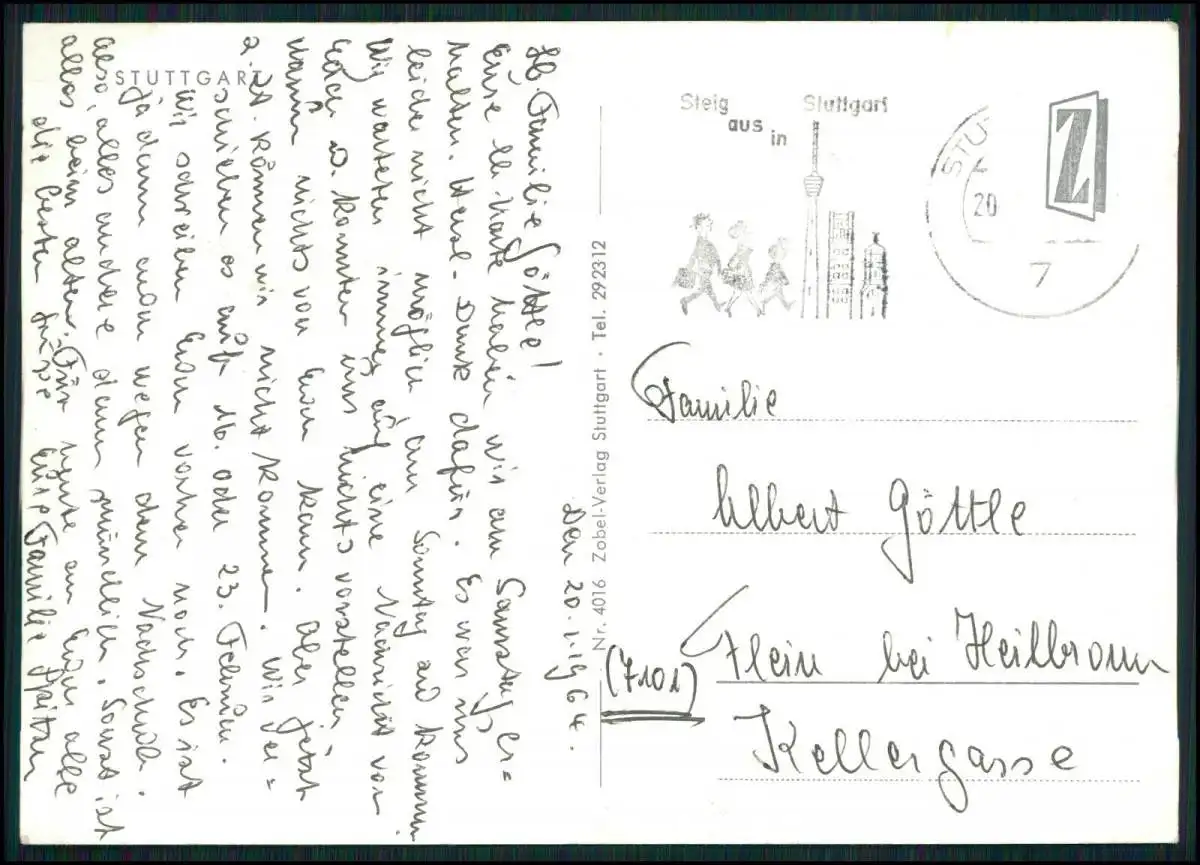 STUTTGART
Den 20.1.1964.
Lb. Familie Göttle!
Eure lb. Karte haben wir am Samstag er=
halten. Herzl. Dank dafür. Es war uns
leider nicht möglich am Sonntag zu kommen
Wir warteten immer auf eine Nachricht von
Euch u. konnten uns nichts vorstellen
warum nichts von Euch kam. Aber jetzt
z. Zt. können wir nicht kommen. Wir ver=
schieben es auf 16. oder 23. Februar.
Wir schreiben Euch vorher noch. Es ist
ja dann auch wegen dem Nachschub.
also, alles andere dann mündlich. Sonst ist
alles beim alten. Für heute an Euch alle
die besten Grüße Eure Familie
Nr. 4016 Zobel-Verlag Stuttgart · Tel. 292312
Steig
aus
in
Stuttgart
STU
20
Z
7
Familie
Albert Göttle
(7101) Flein bei Heilbronn
Kellergasse